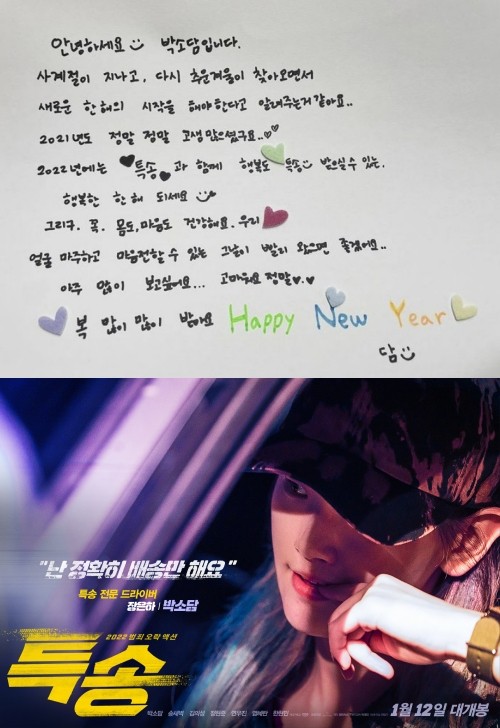 안녕하세요 박소담입니다.
사계절이 지나고, 다시 추운겨울이 찾아오면서
새로운 한해의 시작을 해야한다고 알려주는거 같아요..
2021년도 정말 정말 고생 많으셨구요..
2022년에는 특송 과 함께 행복도 특송 받으실 수 있는,
행복한 한 해 되세요
그리구. 꼭. 몸도, 마음도 건강해요. 우리
얼굴 마주하고 마음전할 수 있는 그날이 빨리 왔으면 좋겠어요..
아주 많이 보고싶어요... 고마워요 정말
복 많이 많이 받아요 Happy New Year
담
"난 정확히 배송만 해요"
특송 전문 드라이버
장은하 | 박소담
2022 범죄 오락 액션
특송
박소담 송새벽 김의성 정현준 연우진 염혜란 한현민
1월 12일 대개봉